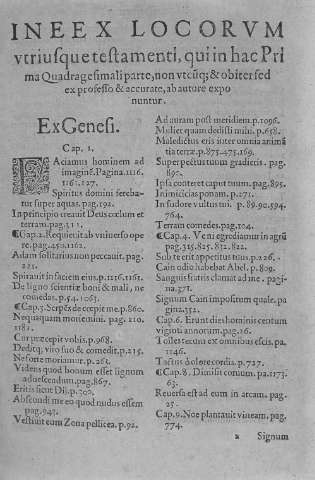 INEEX LOCORVM
vtriusque testamenti, qui in hac Pri
ma Quadragesimali parte, non vtcūq; & obiter sed
ex professo & accurate, ab auture expo
nuntur.
Ex Genesi.
Cap. 1.
FAciamus hominem ad
imaginē. Pagina. 1116.
1161. 127.
Spiritus domini fereba-
tur super aquas. pag. 192.
In principio creauit Deus cœlum et
terram. pag. 311.
¶Cap. 2. Requieuit ab vniuerso ope
re. pag. 450. 1162.
Adam solitarius non peccauit. pag.
221.
Spirauit in faciem eius. p. 1226. 1161.
De ligno scientiæ boni & mali, ne
comedas. p. 54. 1063.
¶Cap. 3. Serpēs decepit me. p. 860.
Nequaquam moriemini. pag. 210.
1182.
Cur præcepit vobis. p. 968.
Deditq; viro suo & comedit. p. 215.
Ne forte moriamur. p. 261.
Videns quod bonum esset lignum
ad uescendum. pag. 867.
Eritis sicut Dii. p. 200.
Abscondi me eo quod nudus essem
pag. 943.
Vestiuit eum Zona pellicea. p. 92.
Ad auram post meridiem. p. 1096.
Mulier quam dedisti mihi. p. 658.
Maledictus eris inter omnia animā
tia terræ. p. 875. 475. 169.
Super pectus tuum gradieris. pag.
890.
Ipsa conteret caput tuum. pag. 895.
Inimicicias ponam. p. 271.
In sudore vultus tui. p. 89. 90. 594.
764.
Terram comedes. pag. 104.
¶Cap. 4. Veni egrediamur in agrū
pag. 315. 825. 832. 822.
Sub te erit appetitus tuus. p. 226.
Cain odio habebat Abel. p. 809.
Sanguis fratris clamat ad me. pagi-
na. 371.
Signum Cain impositum quale. pa
gina. 352.
Cap. 6. Erunt dies hominis centum
viginti annorum. pag. 16.
Tolles tecum ex omnibus escis. pa.
1146.
Tactus dolore cordis. p. 727.
¶Cap. 8. Dimisit coruum. pa. 1173.
63.
Reuersa est ad eum in arcam. pag.
25.
Cap. 9. Noe plantauit vineam. pag.
774.
a Signum